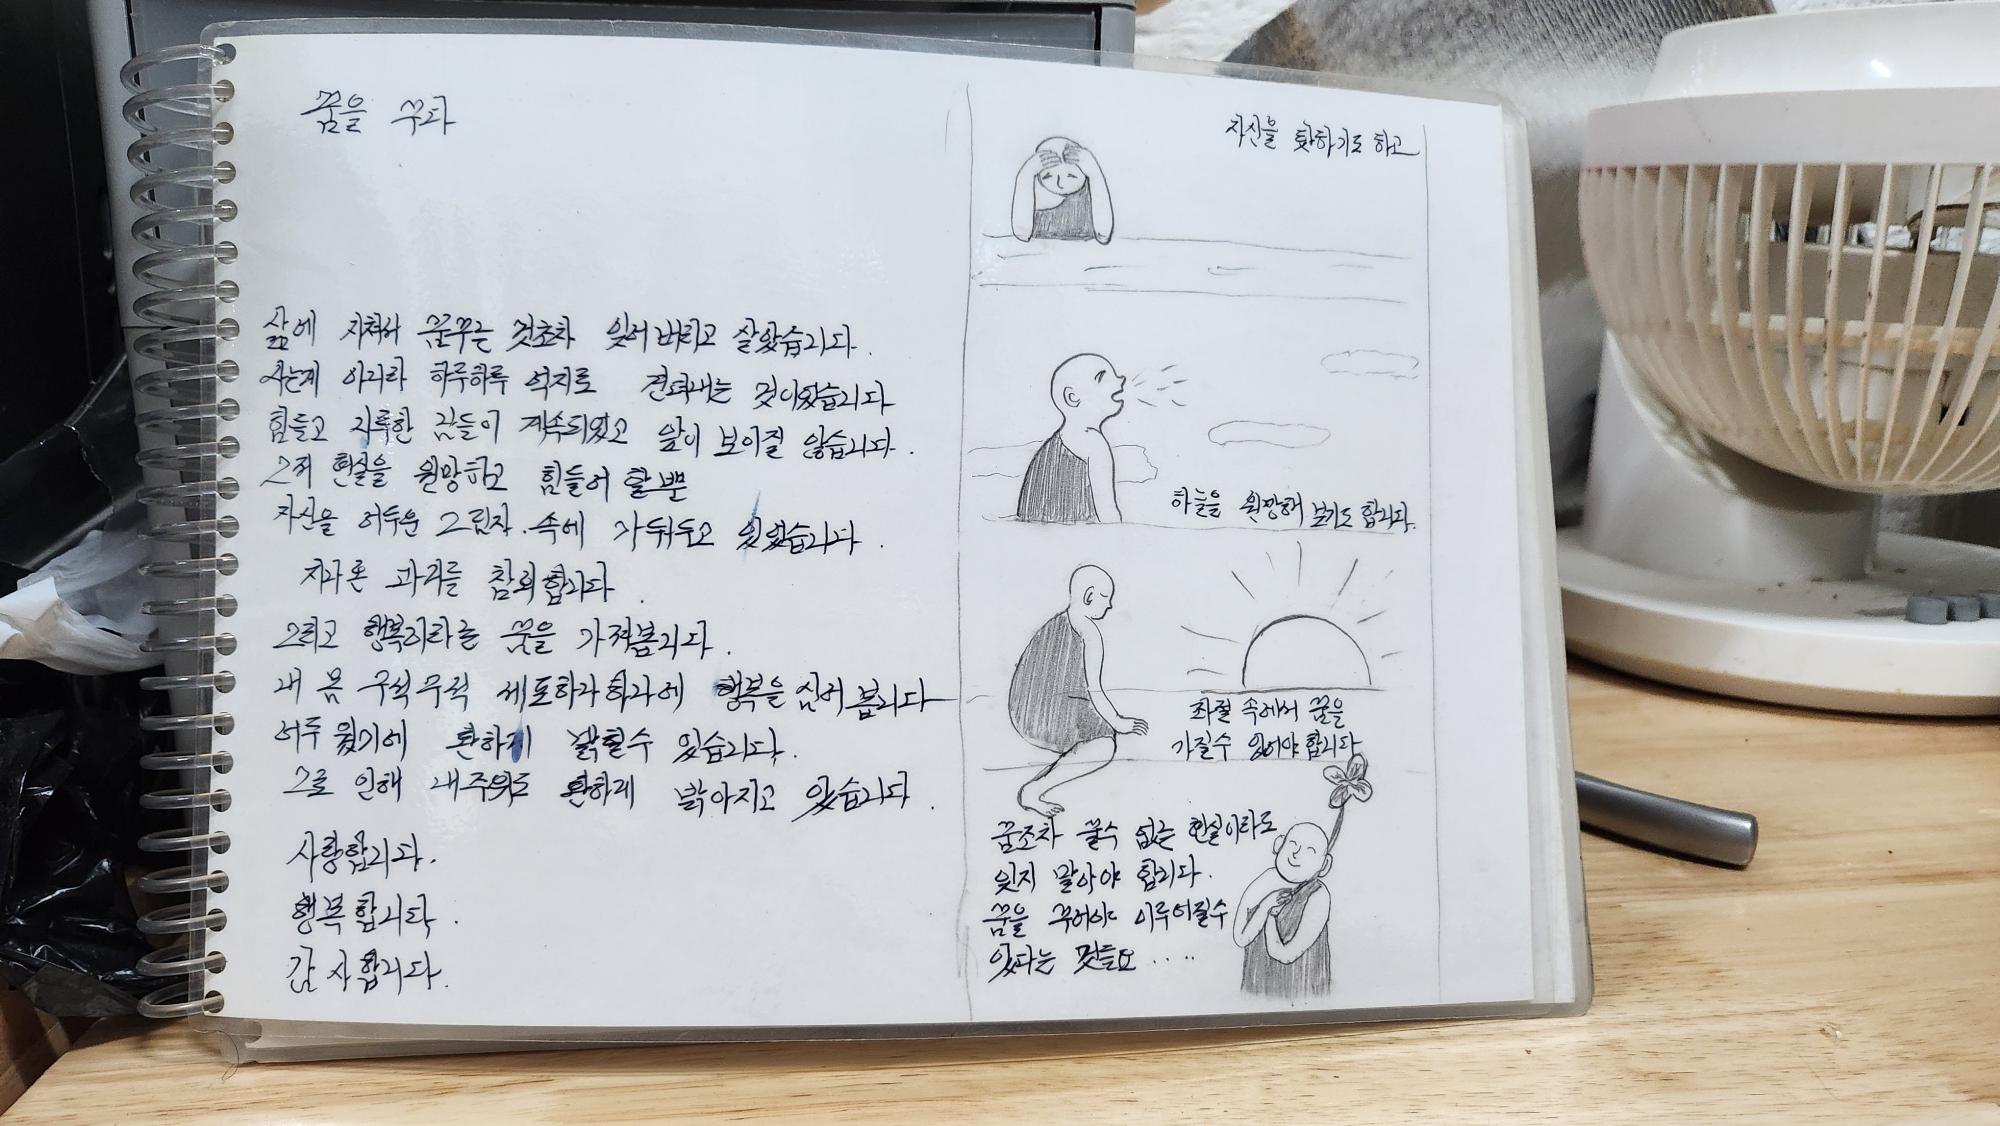 꿈을 꾸다
삶에 지쳐서 꿈꾸는 것초차 잊어버리고 살았습니다.
사는게 아니라 하루하루 억지로 견뎌내는 것이었습니다
힘들고 지루한 날들이 계속되었고 앞이 보이질 않습니다.
그저 현실을 원망하고 힘들어 할뿐
자신을 어두운 그림자 속에 가둬두고 있었습니다.
지나온 과거를 참회합니다.
그리고 행복하라는 꿈을 가져봅니다.
내 몸 구석구석 세포하나하나에 행복을 심어 봅니다
어두웠기에 환하게 밝힐수 있습니다.
그로 인해 내주위도 환하게 밝아지고 있습니다.
사랑합니다.
행복합니다.
감사합니다.
자신을 하기도 하고
하늘을 원망해 보기도 합니다.
좌절 속에서 꿈을
가질수 있어야 합니다
꿈조차 꿀수 없는 현실이라도
잊지 말아야 합니다.
꿈을 꾸어야 이루어질수
있다는 것들요....